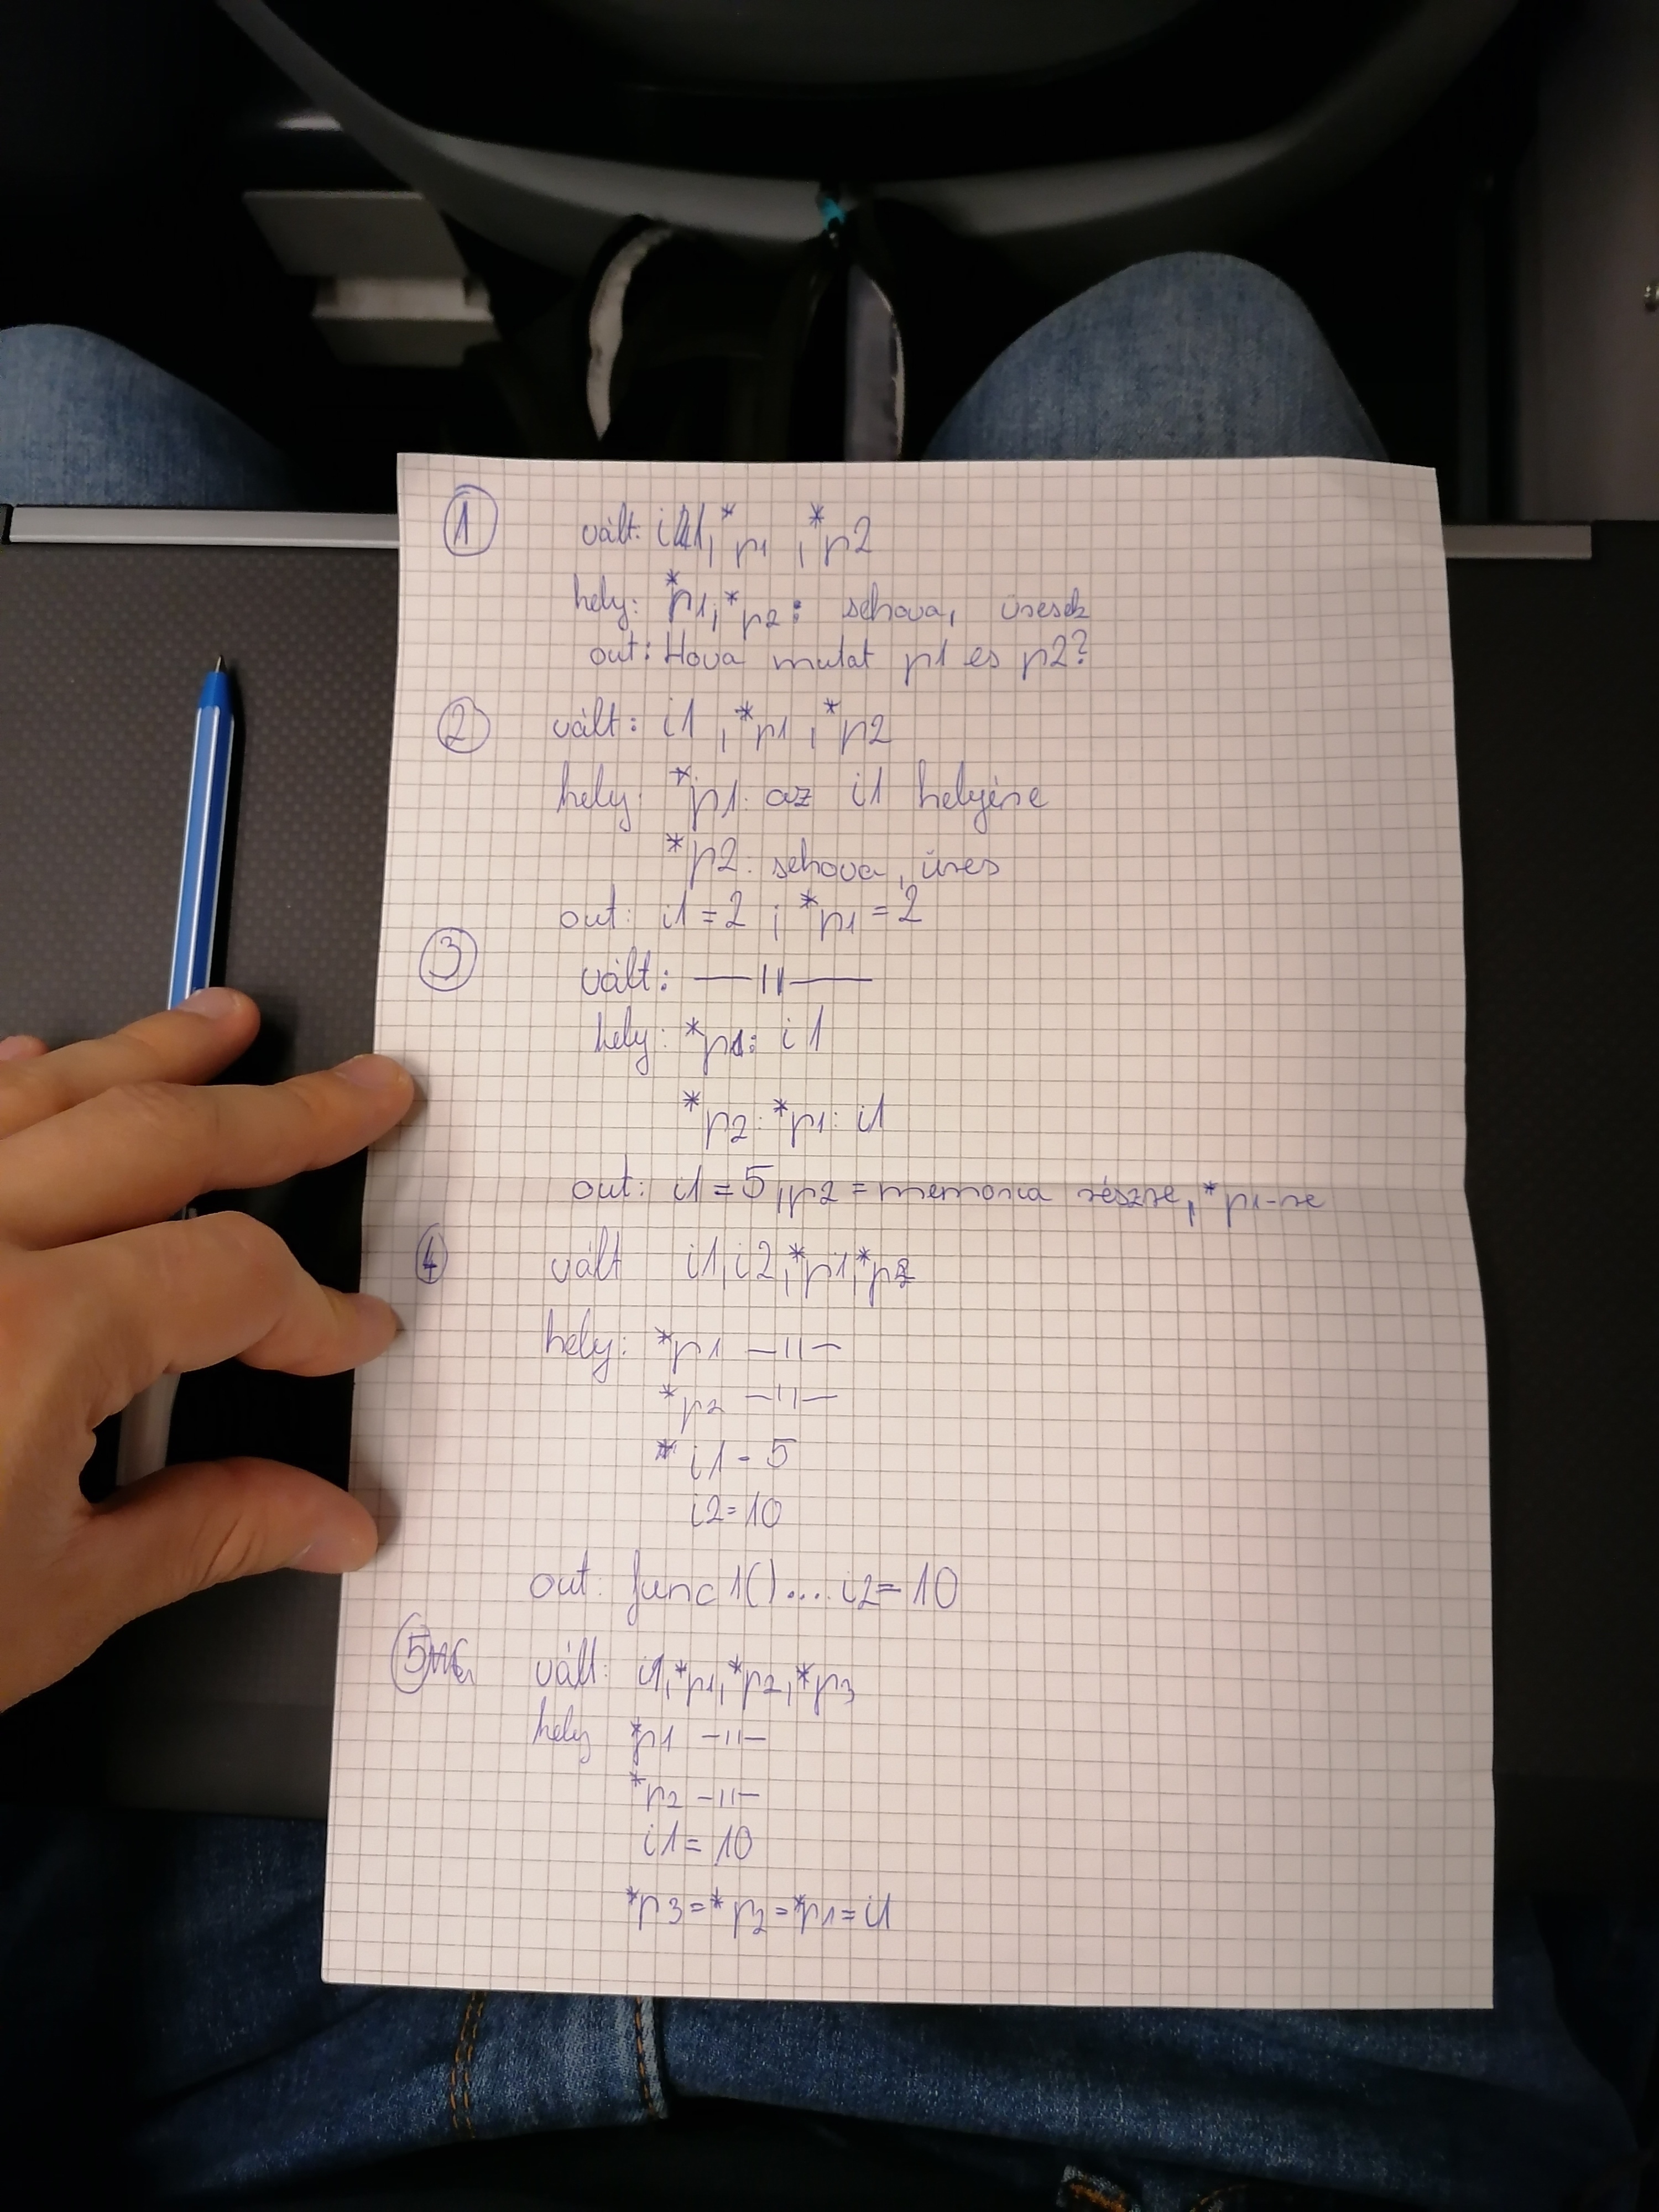 1 vált: i1, *p1, *p2
hely: *p1, *p2: sehova, üresek
out: Hova mutat p1 es p2?
2 vált: i1, *p1, *p2
hely: *p1: az i1 helyére
*p2: sehova, üres
out: i1=2, *p1=2
3
vált: —11—
hely: *p1: i1
*p2: *p1: i1
out: i1=5, p2=memoria részre, *p1-re
4 vált i1, i2, *p1, *p2
hely: *p1 —11—
*p2 —11—
* i1-5
i2=10
out: func1()....i2=10
5 vált: i1, *p1, *p2, *p3
hely *p1 —11—
*p2 —11—
i1=10
*p3=*p2=*p1=i1